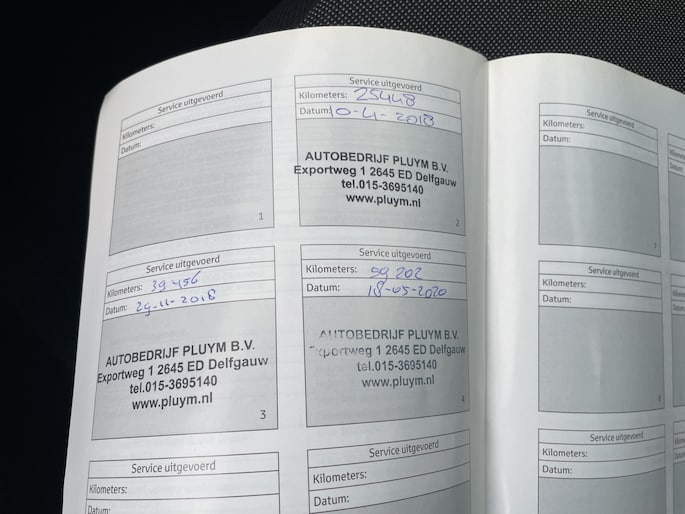 Service uitgevoerd
Kilometers:
Datum:
1
Service uitgevoerd
Kilometers: 25448
Datum: 10-4-2018
AUTOBEDRIJF PLUYM B.V.
Exportweg 1 2645 ED Delfgauw
tel.015-3695140
www.pluym.nl
2
Service uitgevoerd
Kilometers: 39.456
Datum: 29-11-2018
AUTOBEDRIJF PLUYM B.V.
Exportweg 1 2645 ED Delfgauw
tel.015-3695140
www.pluym.nl
3
Service uitgevoerd
Kilometers: 59 202
Datum: 18-05-2020
AUTOBEDRIJF PLUYM B.V.
Exportweg 1 2645 ED Delfgauw
tel.015-3695140
www.pluym.nl
4
Service uitgevoerd
Kilometers:
Datum:
Service uitgevoerd
Kilometers:
Datum:
Service uitgevoerd
Kilometers:
Datum:
7
Service uitgevoerd
Kilometers:
Datum:
Service uitgevoerd
Kilometers:
Datum: